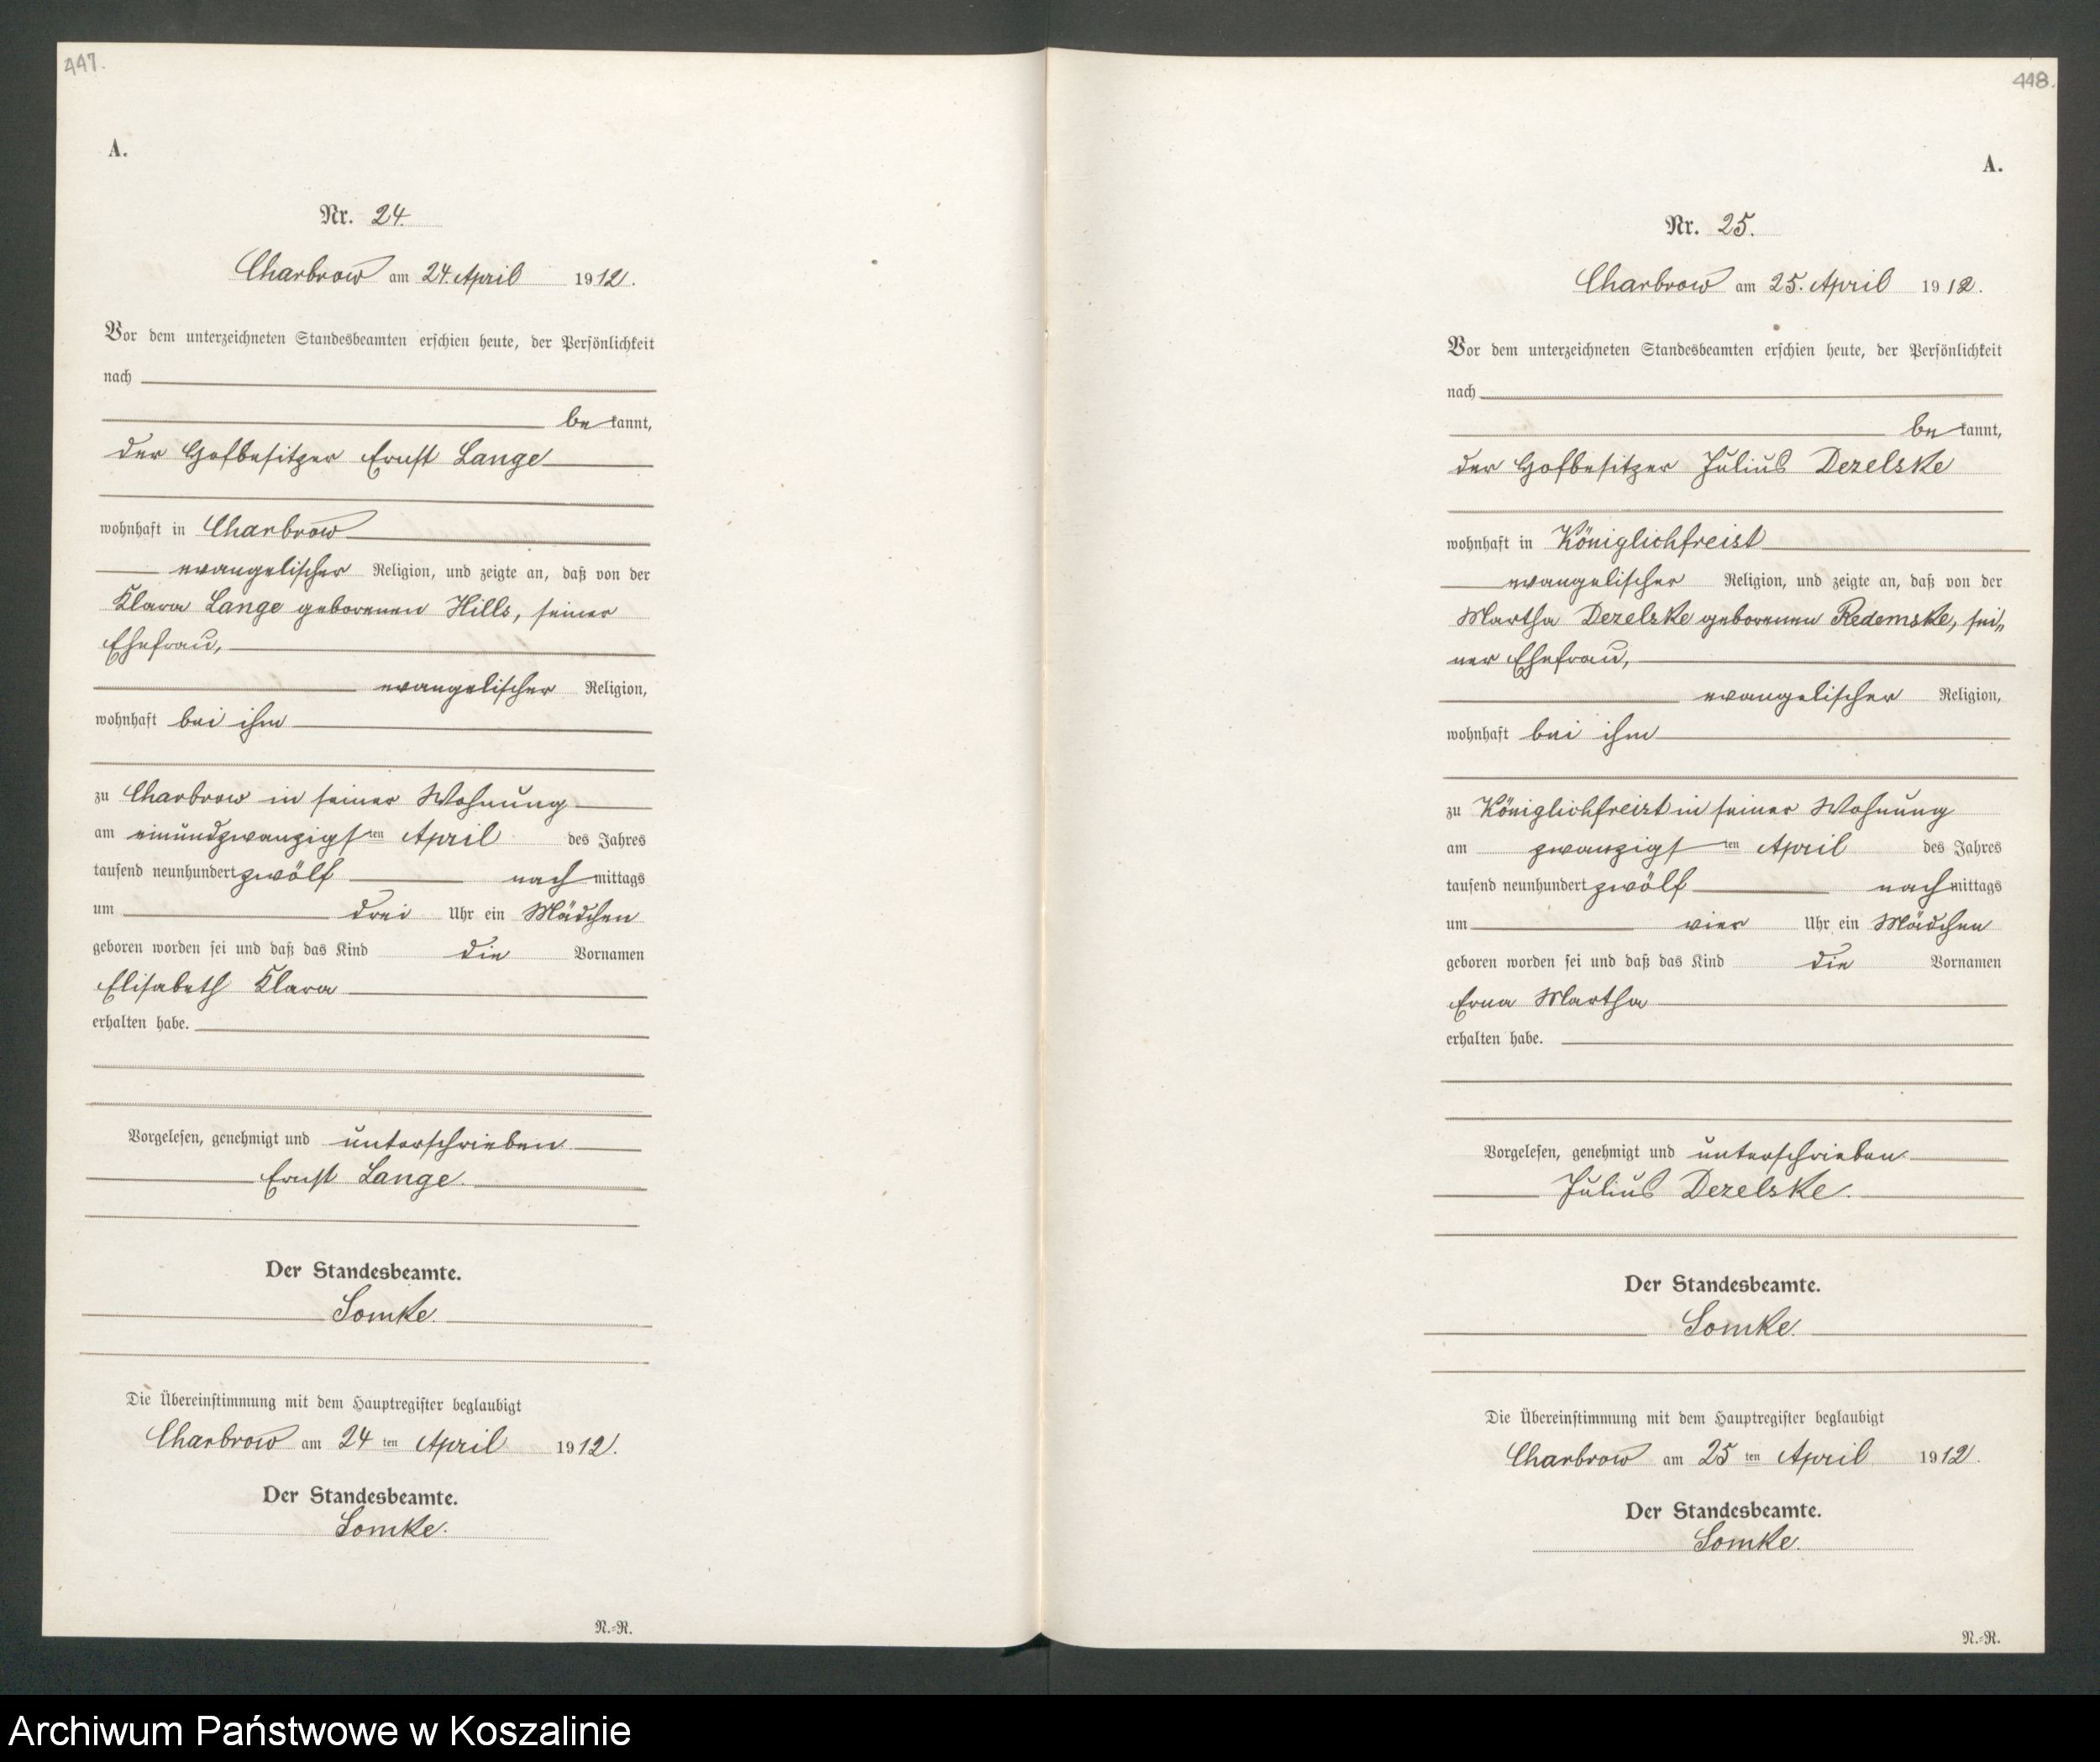 447.
A.
Nr. 24.
Charbrow am 24. April 1912.
Vor dem unterzeichneten Standesbeamten erschien heute, der Persönlichkeit
nach
be kannt,
der Hofbesitzer Ernst Lange
wohnhaft in Charbrow
evangelischer Religion, und zeigte an, daß von der
Klara Lange geborenen Hills, seiner
Ehefrau,
evangelischer Religion,
wohnhaft bei ihm
zu Charbrow in seiner Wohnung
am einundzwanzigsten April des Jahres
tausend neunhundert zwölf nachmittags
um drei Uhr ein Mädchen
geboren worden sei und daß das Kind die Vornamen
Elisabeth Klara
erhalten habe.
Vorgelesen, genehmigt und unterschrieben
Ernst Lange.
Der Standesbeamte.
Somke.
Die Übereinstimmung mit dem Hauptregister beglaubigt
Charbrow am 24 ten April 1912.
Der Standesbeamte.
Somke.
N.=R.
448.
A.
Nr. 25.
Charbrow am 25. April 1912.
Vor dem unterzeichneten Standesbeamten erschien heute, der Persönlichkeit
nach
be kannt,
der Hofbesitzer Julius Dezelske
wohnhaft in Königlichfreist
evangelischer Religion, und zeigte an, daß von der
Martha Dezelske geborenen Redemske, sei„
ner Ehefrau,
evangelischer Religion,
wohnhaft bei ihm
zu Königlichfreist in seiner Wohnung
am zwanzigsten April des Jahres
tausend neunhundert zwölf nachmittags
um vier Uhr ein Mädchen
geboren worden sei und daß das Kind die Vornamen
Erna Martha
erhalten habe.
Vorgelesen, genehmigt und unterschrieben
Julius Dezelske.
Der Standesbeamte.
Somke.
Die Übereinstimmung mit dem Hauptregister beglaubigt
Charbrow am 25 ten April 1912.
Der Standesbeamte.
Somke.
N.=R.
Archiwum Państwowe w Koszalinie